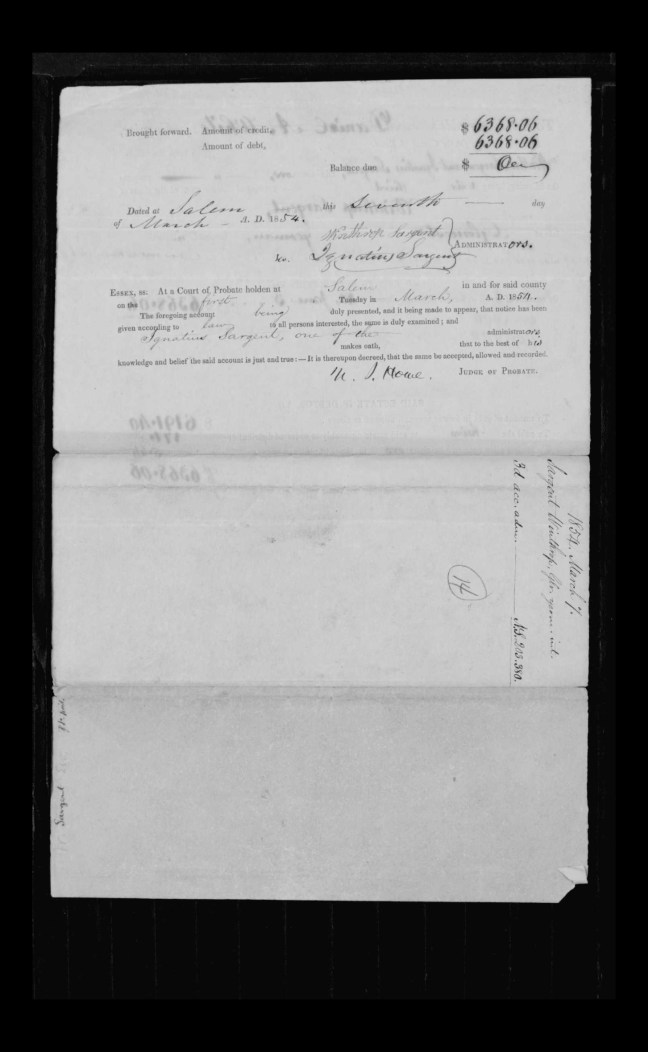 Brought forward. Amount of credit, $ 6368.06
Amount of debt, 6368.06
Balance due $
Dated at Salem this Seventh day
of March A. D. 1854.
Winthrop Sargent
Ignatius Sargent ADMINISTRATORS.
ESSEX, ss. At a Court of Probate holden at Salem in and for said county
on the first Tuesday in March, A. D. 1854.
The foregoing account being duly presented, and it being made to appear, that notice has been
given according to law to all persons interested, the same is duly examined; and
Ignatius Sargent, one of the administrators
makes oath, that to the best of his
knowledge and belief the said account is just and true:—It is thereupon decreed, that the same be accepted, allowed and recorded.
N. S. Howe. JUDGE OF PROBATE.
1854. March 7.
Sargent Winthrop,
3d acc. adm. 203.380.
14
Sargent